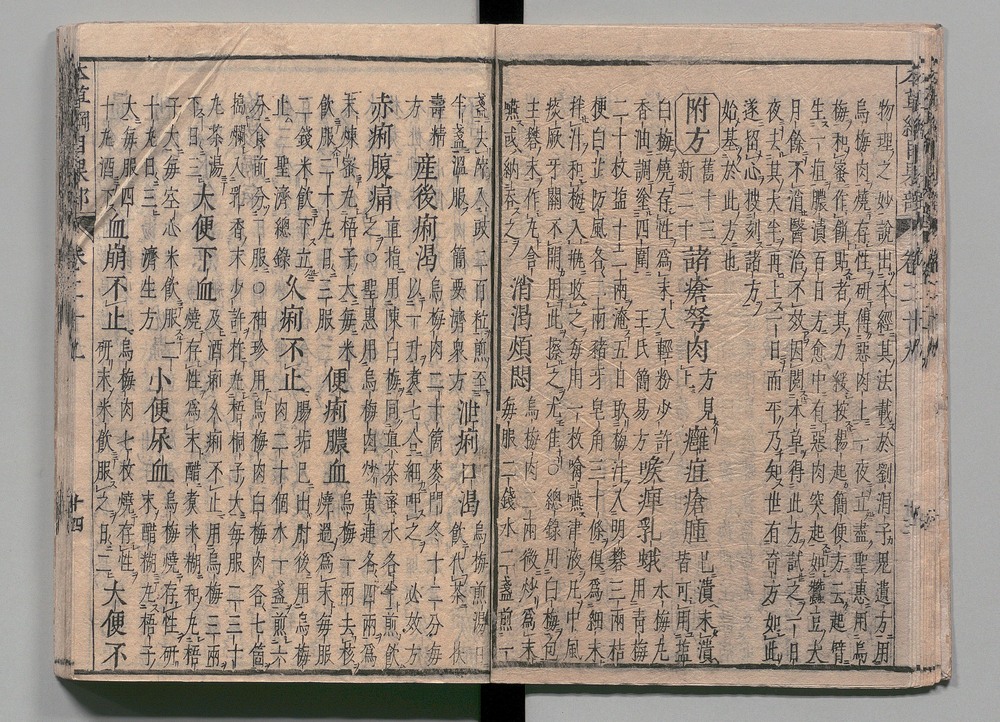 物理之妙說出本經其法載於劉涓子鬼遺方用
烏梅肉燒存性研傅惡肉上一夜立盡聖惠用烏
梅和蜜作餅貼者其力緩按楊起簡便方云起臂
生一疽膿潰百日方愈中有惡肉突起如蠶豆大
月餘不消醫治不效因閱本草得此方試之一日
夜去其大半再上一日而平乃知世有奇方如此
遂留心搜刻諸方
始基於此方也
附方 舊十三新二十 諸瘡弩肉 方見上 癰疽瘡腫 已潰未潰皆可用鹽
白梅燒存性爲末入輕粉少許香油調塗四圍 王氏簡易方 喉痺乳蛾 冰梅丸用青梅
二十枚鹽十二兩淹五日取梅汁入明礬三兩桔
梗白芷防風各二兩豬牙皂角三十條俱爲細末
拌汁和梅入瓶收之每用一枚噙嚥津液凡中風
痰厥牙關不開用此擦之尤佳○總錄用白梅包
生礬末作丸含嚥或納吞之 消渴煩悶 烏梅肉二兩微炒爲末每服二錢水二盞煎一
盞去滓入豉二百粒煎至半盞溫服 簡要濟衆方 泄痢口渴 烏梅煎湯日飲代茶 扶
壽精方 產後痢渴 烏梅肉二十箇麥門冬十二分每以一升煮七合細呷之 必效方
赤痢腹痛 直指用陳白梅同真茶蜜水各半煎飲之○聖惠用烏梅肉炒黃連各四兩爲
末煉蜜丸梧子大每米飲服二十丸日三服 便痢膿血 烏梅一兩去核燒過爲末每服
二錢米飲下立止 聖濟總錄 久痢不止 腸垢已出肘後用烏梅肉二十個水一盞煎六
分食前分二服○袖珍用烏梅肉白梅肉各七箇
搗爛入乳香末少許杵丸梧桐子大每服二三十
丸茶湯下日三 大便下血 及酒痢久痢不止用烏梅三兩燒存性爲末醋煮米糊和丸梧
子大每空心米飲服二十丸日三 濟生方 小便尿血 烏梅燒存性研末醋糊丸梧子
大每服四十丸酒下 血崩不止 烏梅肉七枚燒存性研末米飲服之日二 大便不
廿四